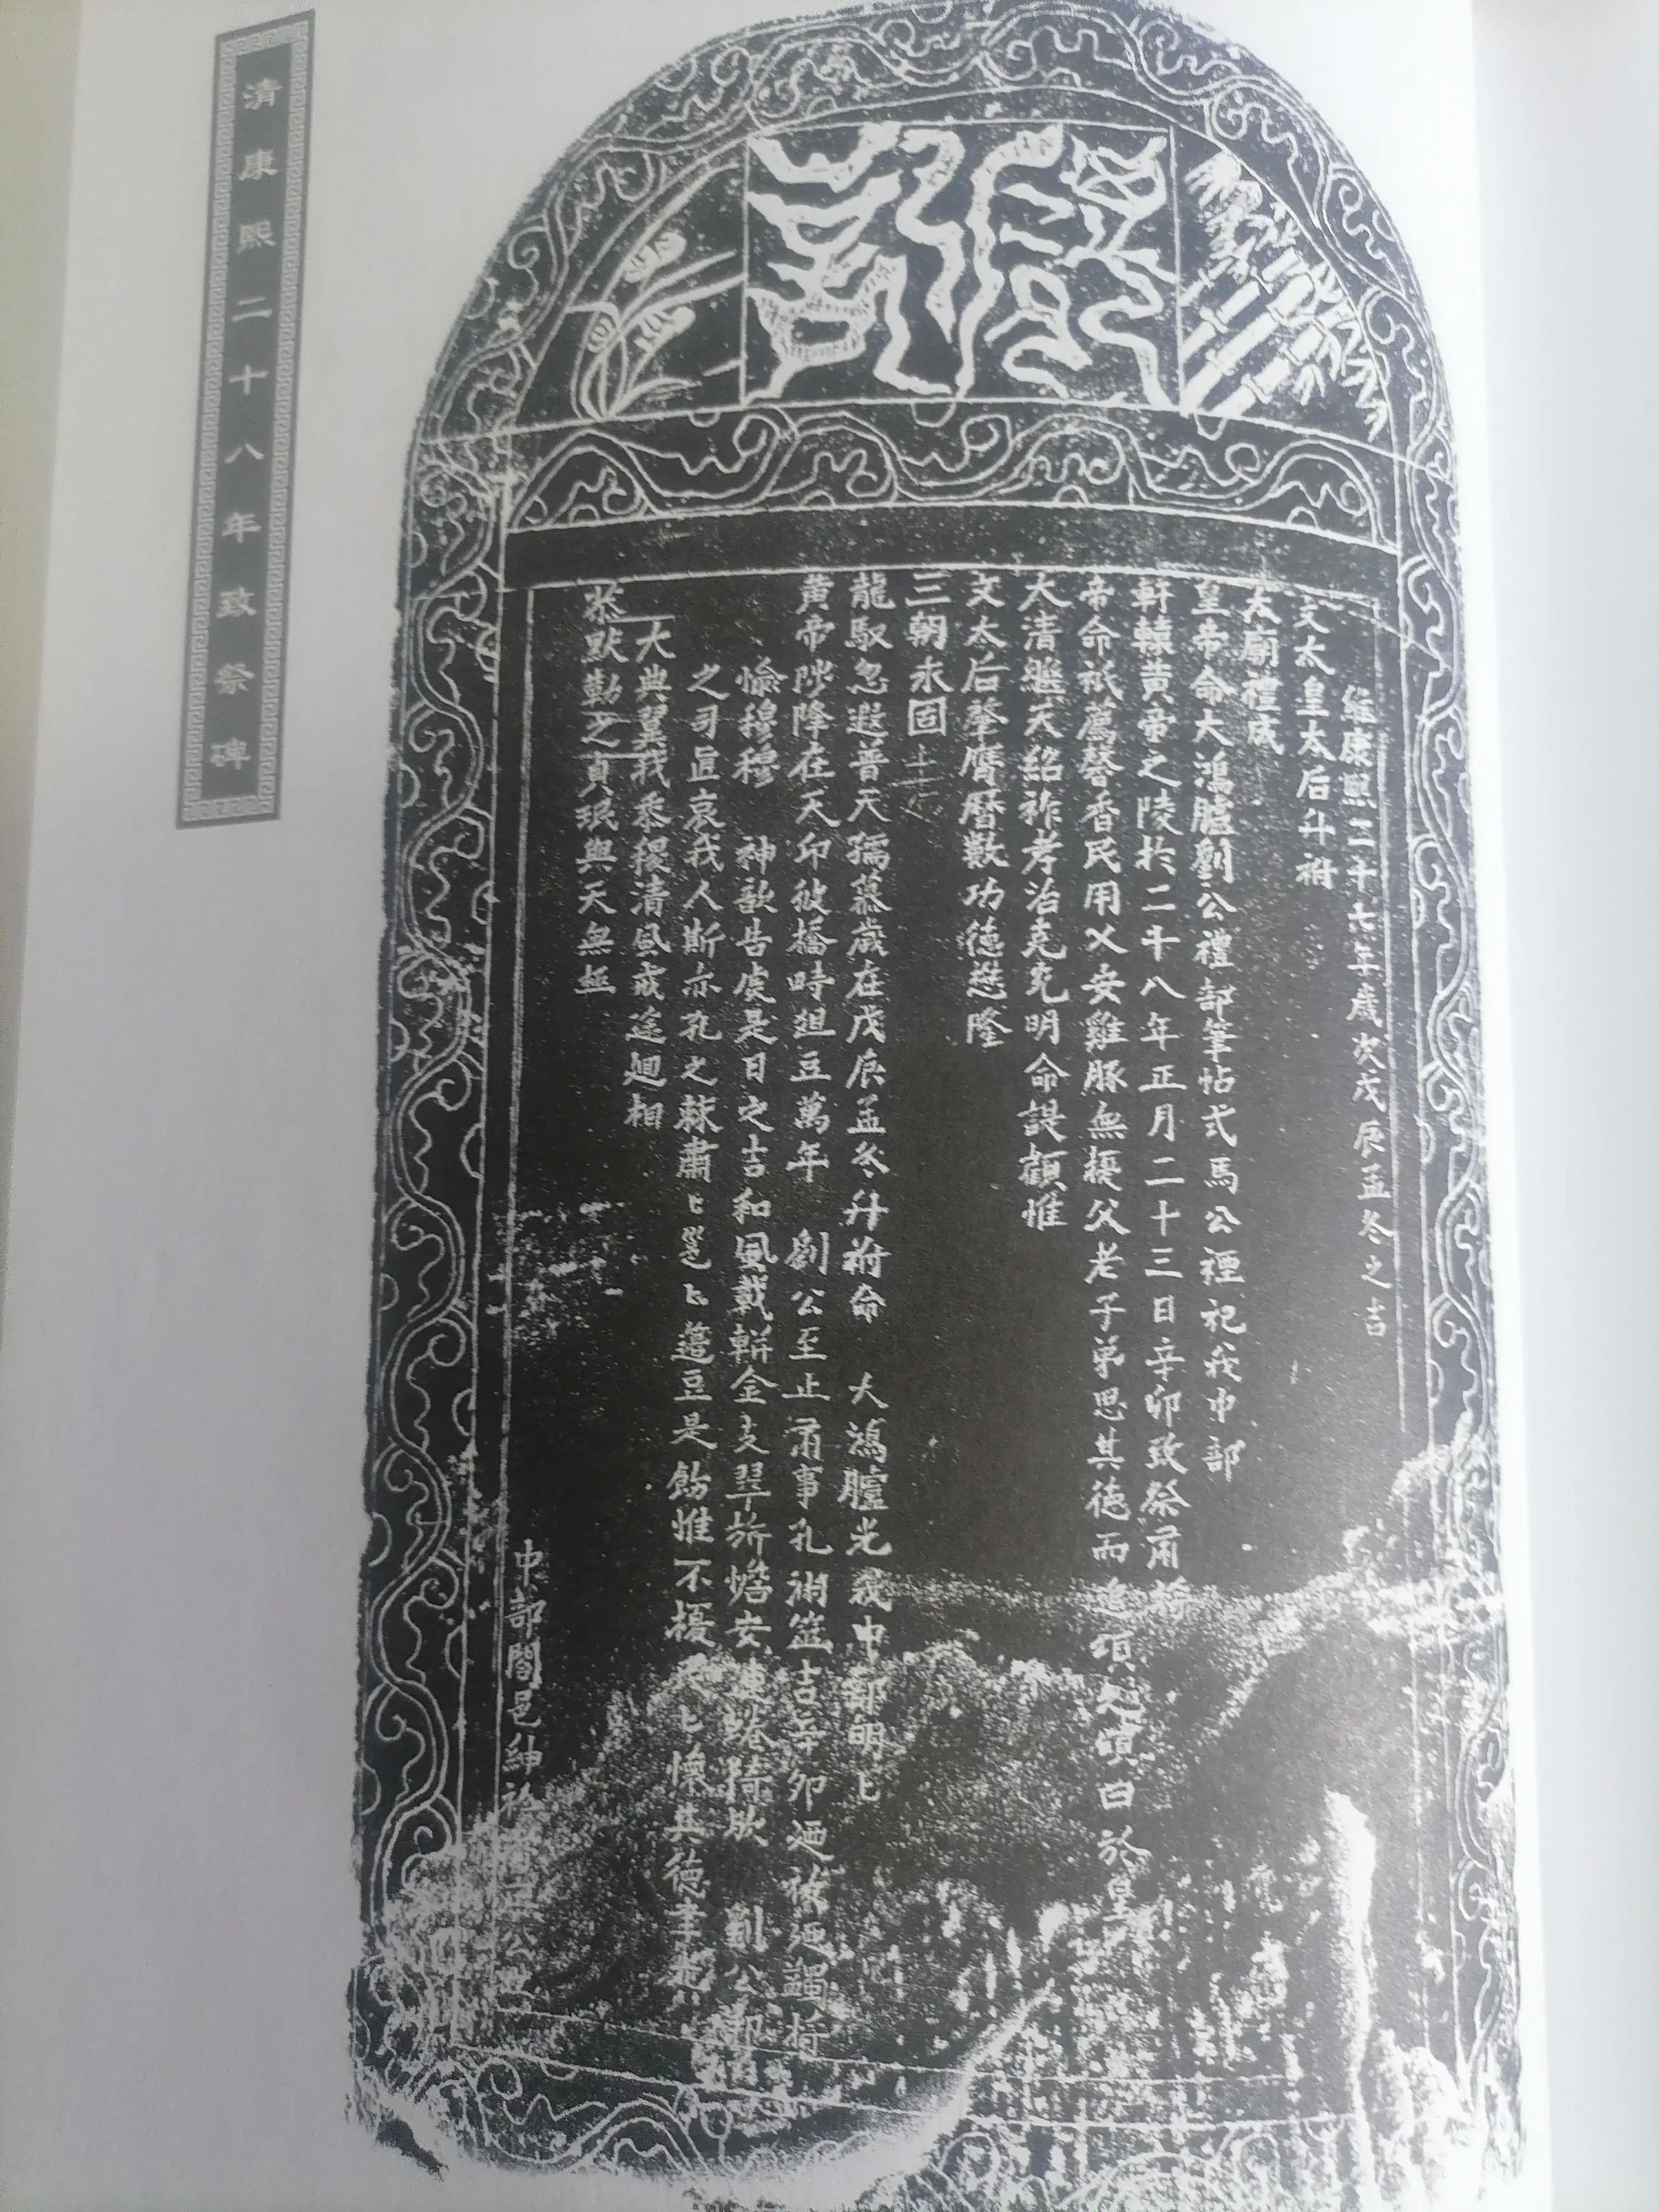 清康熙二十八年致祭碑
維康熙二十七年歲次戊辰孟冬之吉
文太皇太后升祔
太廟禮成
皇帝命大鴻臚劉公禮部筆帖式馬公禋祀我中部
軒轅黃帝之陵於二十八年正月二十三日辛卯致祭肅
帝命祇薦馨香民用乂安雞豚無擾父老子弟思其德而追頌之頌曰於皇
大清繼天紹祚孝治克明命諟顧惟
文太后肇膺曆數功德懋隆
三朝永固
龍馭忽遐普天孺慕歲在戊辰孟冬升祔命 大鴻臚光我中部明匕
黃帝陟降在天卬彼橋時俎豆萬年 劉公至止肅事孔淵筮吉辛卯
愉穆穆 神歆告虔是日之吉和風載軿金支翠旂 劉公
之司寔哀我人斯亦孔之棘肅匕 匕籩豆是飭惟不擾 匕懷其德
大典翼我黍稷清風 迴相
默勒之貞珉與天無極
中部閤邑紳衿